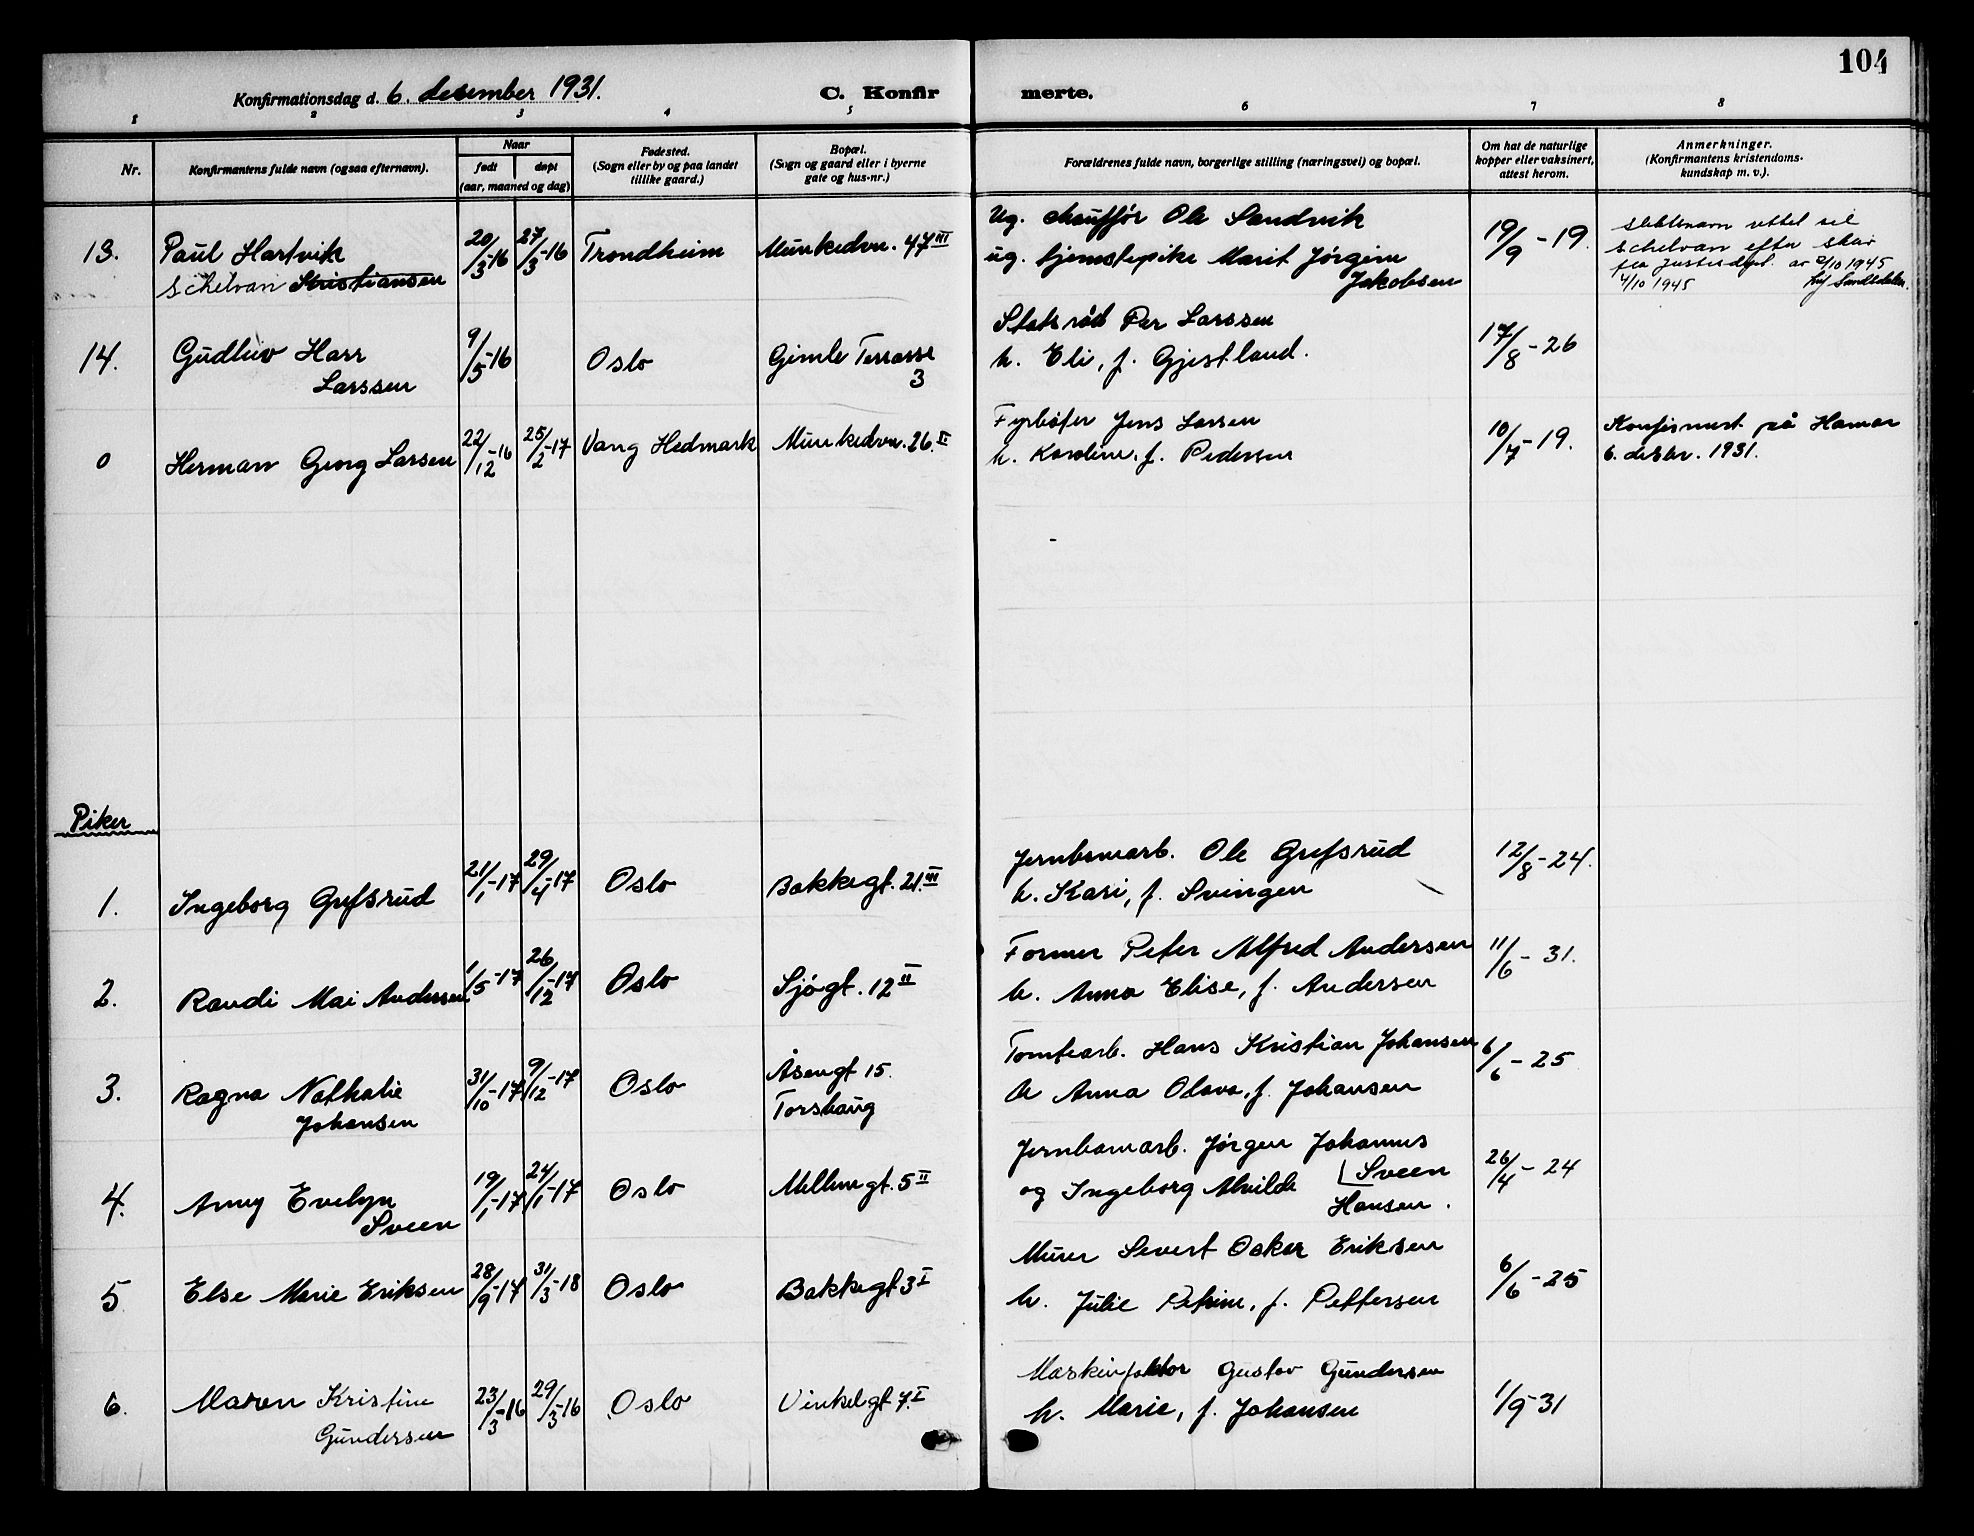 104
Konfirmationsdag d. 6. desember 1931.
C. Konfir
merte.
1 2 3 4 5 6 7 8
Nr.
Konfirmantens fulde navn (ogsaa efternavn).
Naar
født
døpt
(aar, maaned og dag)
Fødested.
(Sogn eller by og paa landet
tillike gaard.)
Bopæl.
(Sogn og gaard eller i byerne
gate og hus-nr.)
Forældrenes fulde navn, borgerlige stilling (næringsvei) og bopæl.
Om hat de naturlige
kopper eller vaksinert,
attest herom.
Anmerkninger.
(Konfirmantens kristendoms-
kundskap m. v.).
13.
Paul Hartvik
Schelvan Kristiansen
20/3-16
27/3-16
Trondheim
Munkedvn. 47 III
Ug. chauffør Ole Sandvik
ug. hjemstepike Marit Jørgine
Jakobsen
19/9-19.
slektsnavn rettet til
Schelvan efter skriv
fra Justisdept. av 2/10 1945
4/10 1945
14.
Gudluv Harr
Larssen
9/5-16
Oslo
Gimle Terrasse
3
Statsråd Per Larssen
h. Eli, f. Gjestland.
17/8-26
0
Herman Georg Larsen
22/12-16
25/2-17
Vang Hedmark
Munkedvn. 26. II
Fyrbøter Jens Larsen
h. Karoline, f. Pedersen
10/7-19.
Konfirmert på Hamar
6. desbr. 1931.
Piker
1.
Ingeborg Grefsrud
21/1-17
29/4-17
Oslo
Bakkegt. 21. III
Jernbanearb. Ole Grefsrud
h. Kari, f. Svingen
12/8-24.
2.
Randi Mai Andersen
1/5-17
26/12-17
Oslo
Sjøgt. 12 II
Former Peter Alfred Andersen
h. Anna Elise, f. Andersen
11/6-31.
3.
Ragna Nathalie
Johansen
31/10-17
9/12-17
Oslo
Åsengt 15.
Torshaug
Tomtearb. Hans Kristian Johansen
h Anna Olava, f. Johansen
6/6-25
4.
Anny Evelyn
Sveen
19/1-17
24/1-17
Oslo
Møllergt. 5 II
Jernbanearb. Jørgen Johannes
Sveen
og Ingeborg Alvilde
Hansen.
26/4-24
5
Else Marie Eriksen
28/9-17
31/3-18
Oslo
Bakkegt 3 I
Murer Severt Oskar Eriksen
h. Julie Petrine, f. Pettersen
6/6-25
6.
Maren Kristine
Gundersen
23/3-16
29/3-16
Oslo
Vinkelgt 7. I
Maskinfaktor Gustav Gundersen
h. Marie, f. Johansen
1/9-31